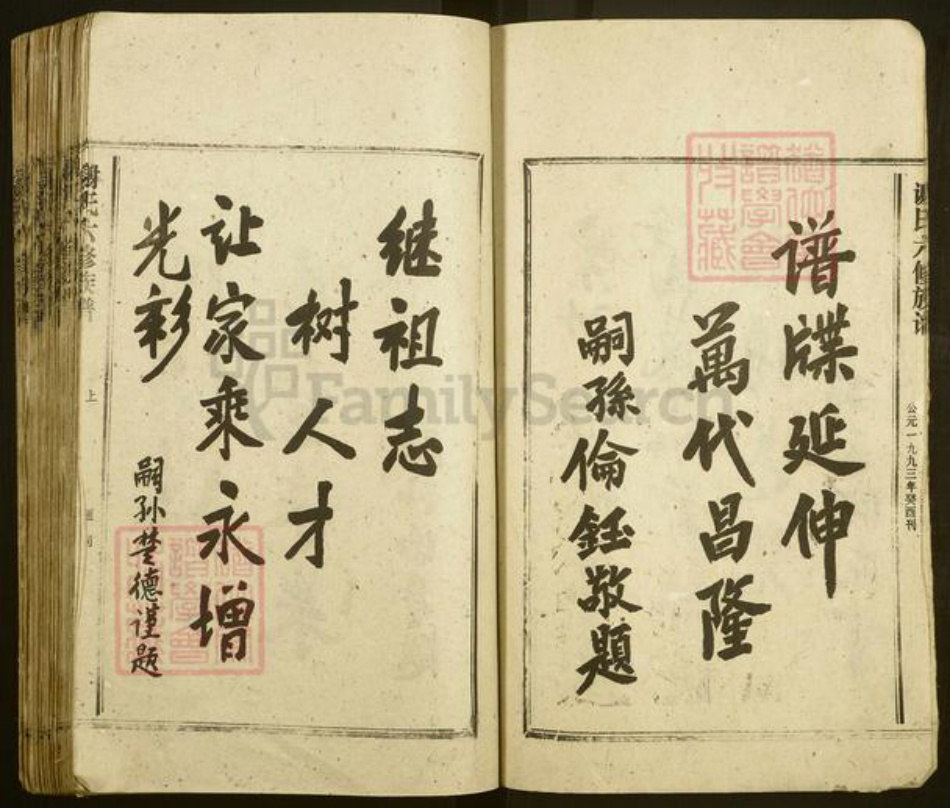 谢氏六修族谱
公元一九九三年癸酉刊
谱牒延伸
萬代昌隆
嗣孫倫鈺敬題
继祖志
树人才
让家乘永增
光彩
嗣孙楚德谨题
谢氏六修族谱
上
FamilySearch